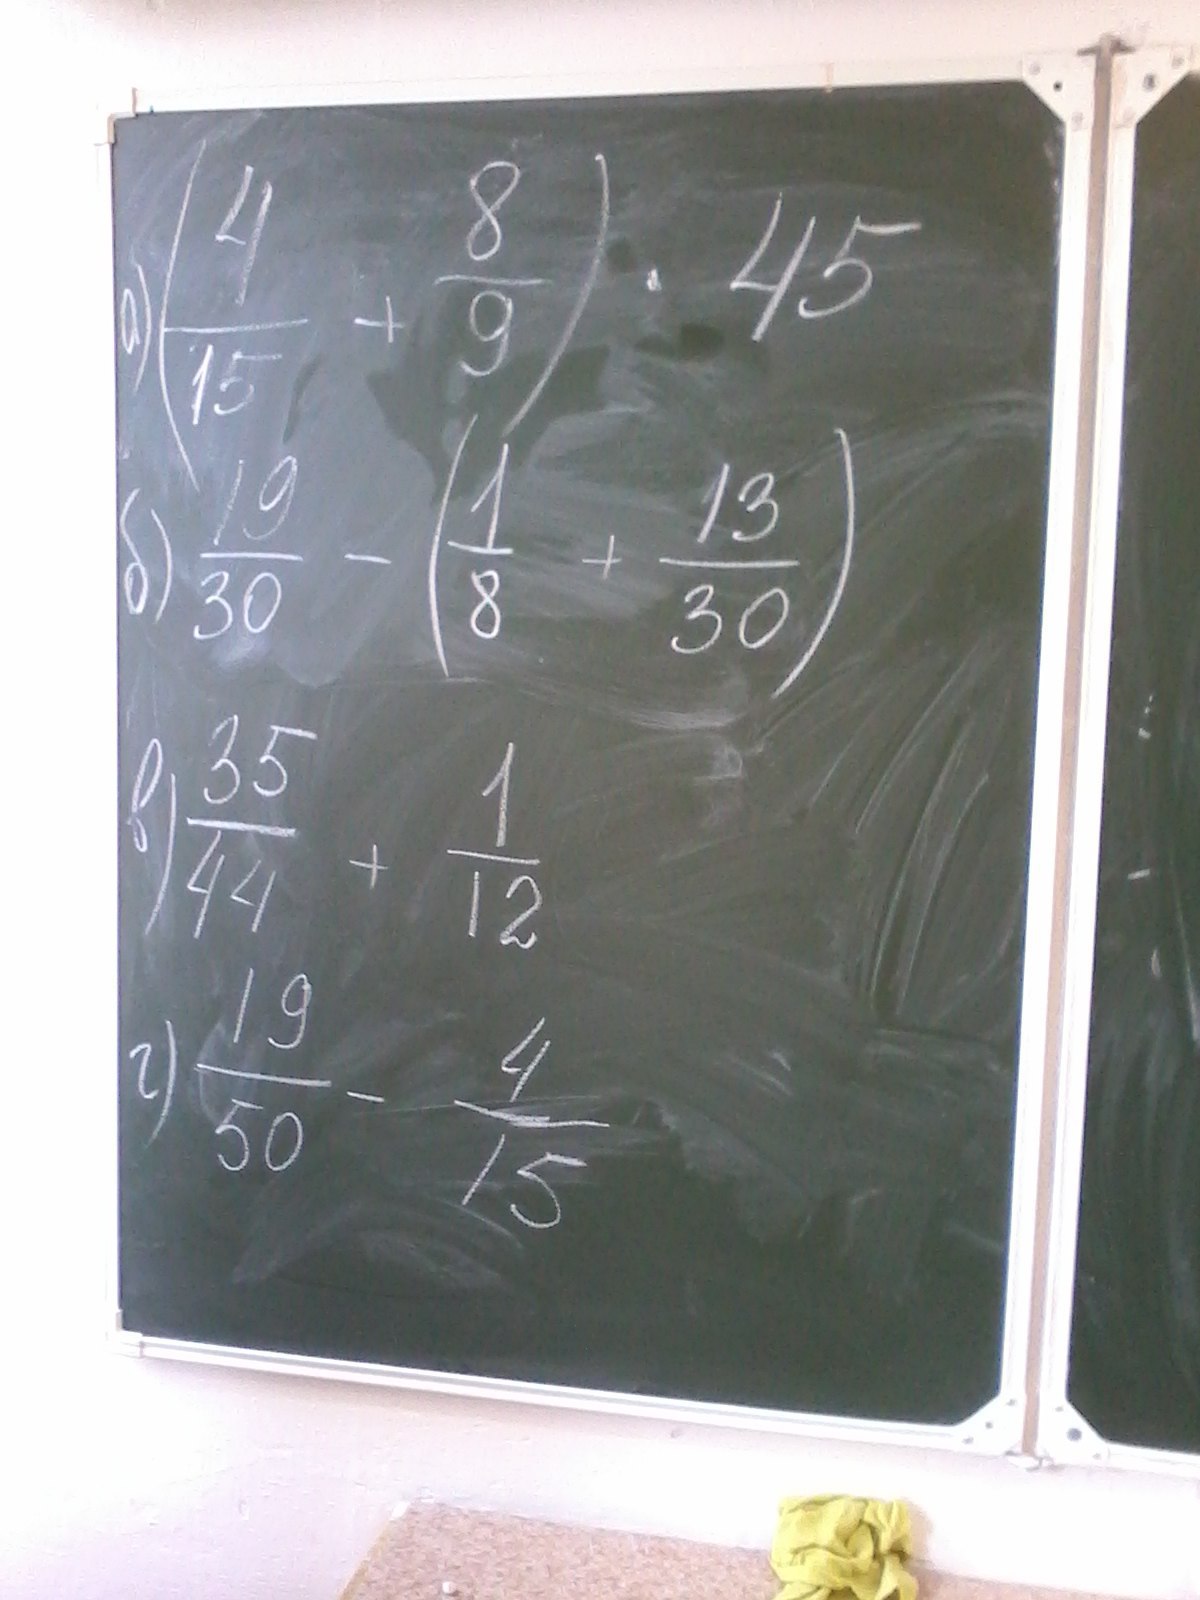 а) (4/15 + 8/9) · 45
б) 19/30 - (1/8 + 13/30)
в) 35/44 + 1/12
г) 19/50 - 4/15